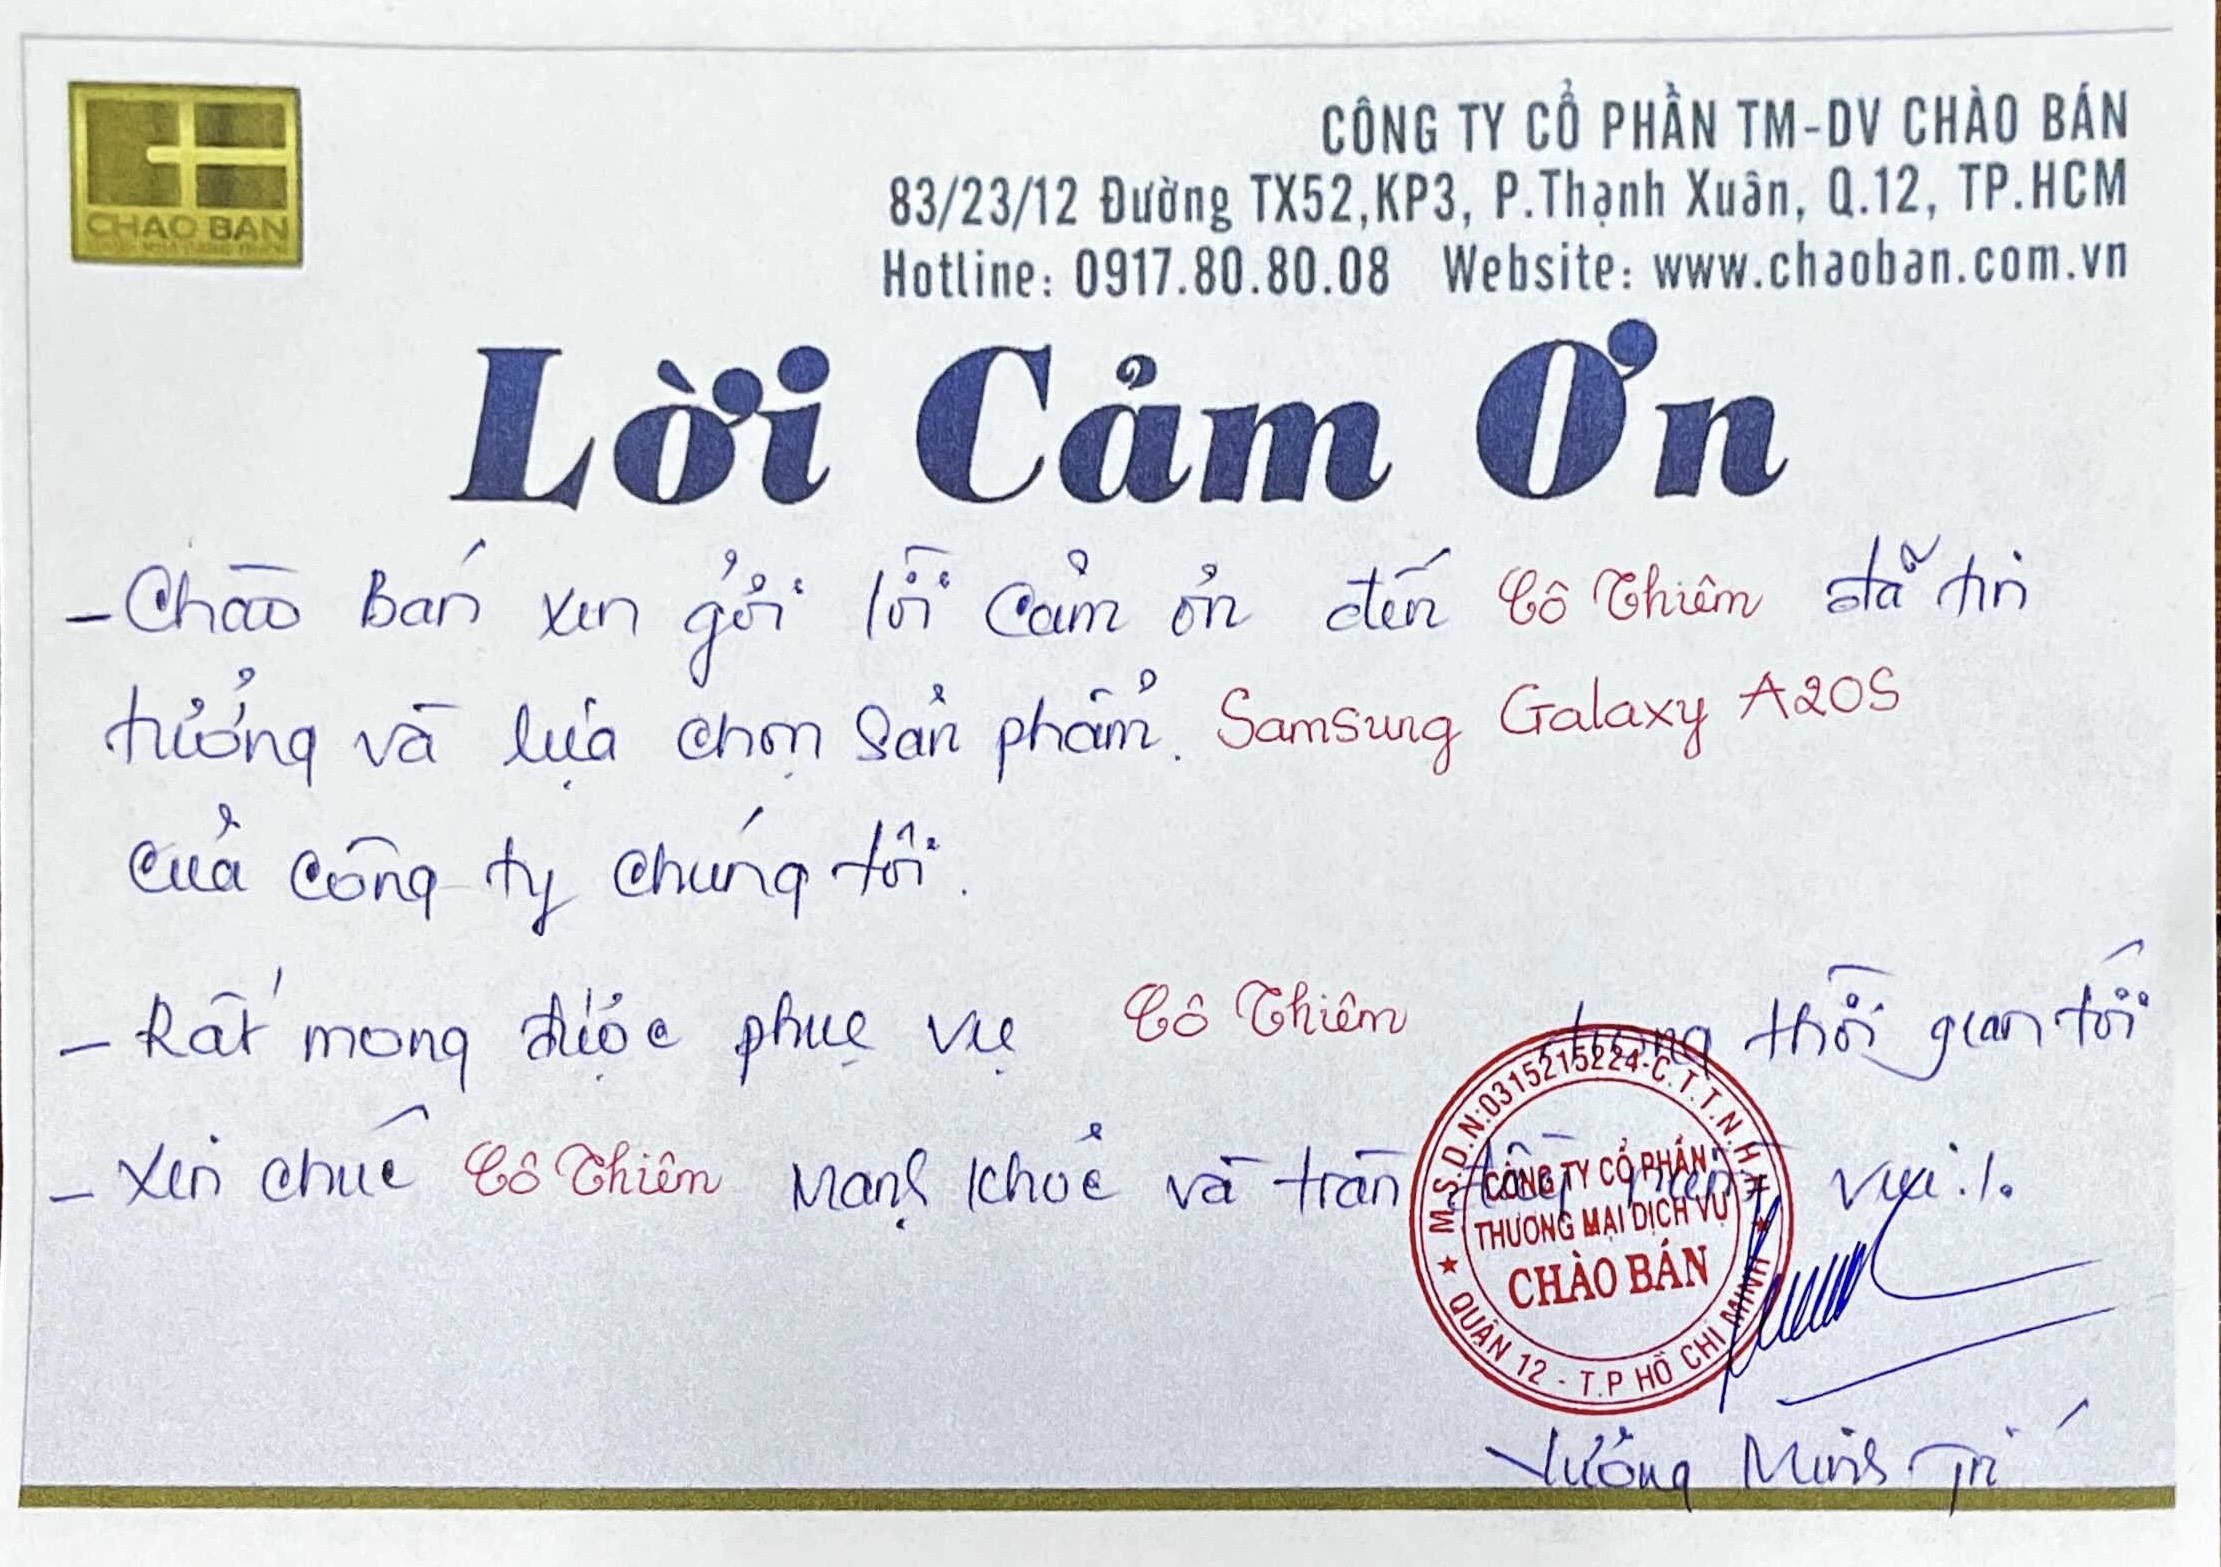 CHAO BAN
CÔNG TY CỔ PHẦN TM-DV CHÀO BÁN
83/23/12 Đường TX52,KP3, P.Thạnh Xuân, Q.12, TP.HCM
Hotline: 0917.80.80.08 Website: www.chaoban.com.vn
Lời Cảm Ơn
- Chào Bán xin gửi lời cảm ơn đến Cô Thiêm đã tin
tưởng và lựa chọn sản phẩm. Samsung Galaxy A20S
của công ty chúng tôi.
- Rất mong được phục vụ Cô Thiêm trong thời gian tới
- Xin chúc Cô Thiêm mạnh khoẻ và tràn đầy niềm vui./.
M.S.D.N:0315215224-C.T.T.N.H.H
CÔNG TY CỔ PHẦN
THƯƠNG MẠI DỊCH VỤ
CHÀO BÁN
QUẬN 12 - T.P HỒ CHÍ MINH
Vương Minh Trí